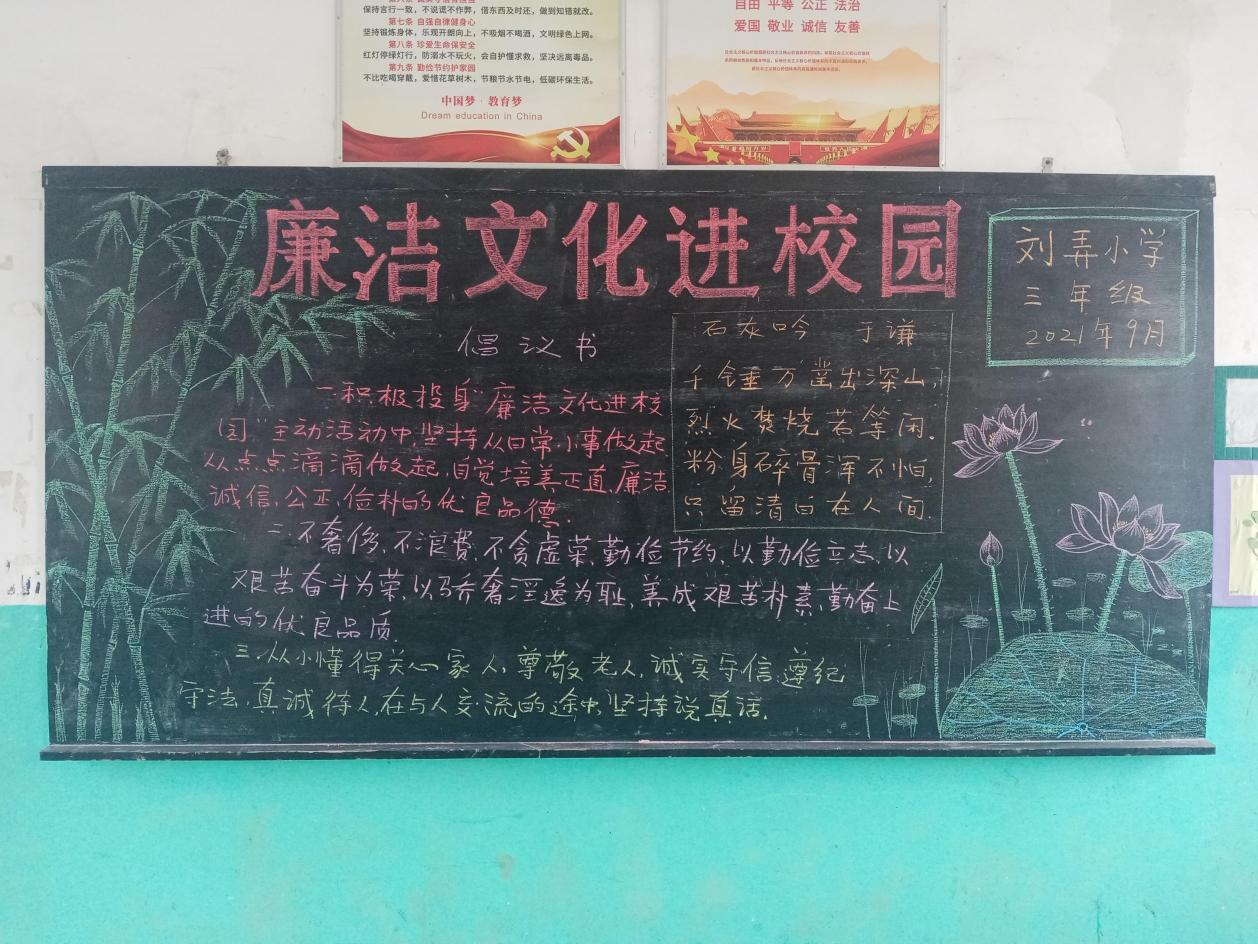 保持言行一致，不说谎不作弊，借东西及时还，做到知错就改。
第七条 自强自律健身心
坚持锻炼身体，乐观开朗向上，不吸烟不喝酒，文明绿色上网。
第八条 珍爱生命保安全
红灯停绿灯行，防溺水不玩火，会自护懂求救，坚决远离毒品。
第九条 勤俭节约护家园
不比吃喝穿戴，爱惜花草树木，节粮节水节电，低碳环保生活。
中国梦·教育梦
Dream education in China
自由 平等 公正 法治
爱国 敬业 诚信 友善
廉洁文化进校园
刘弄小学
三年级
2021年9月
倡议书
一积极投身"廉洁文化进校
园"主动活动中,坚持从日常小事做起
从点点滴滴做起,自觉培养正直、廉洁
诚信,公正,俭朴的优良品德.
二.不奢侈,不浪费,不贪虚荣,勤俭节约,以勤俭立志,以
艰苦奋斗为荣,以骄奢淫逸为耻,养成艰苦朴素,勤奋上
进的优良品质.
三.从小懂得关心家人,尊敬老人,诚实守信,遵纪
守法,真诚待人,在与人交流的途中,坚持说真话.
石灰吟 于谦
千锤万凿出深山,
烈火焚烧若等闲.
粉身碎骨浑不怕,
只留清白在人间.